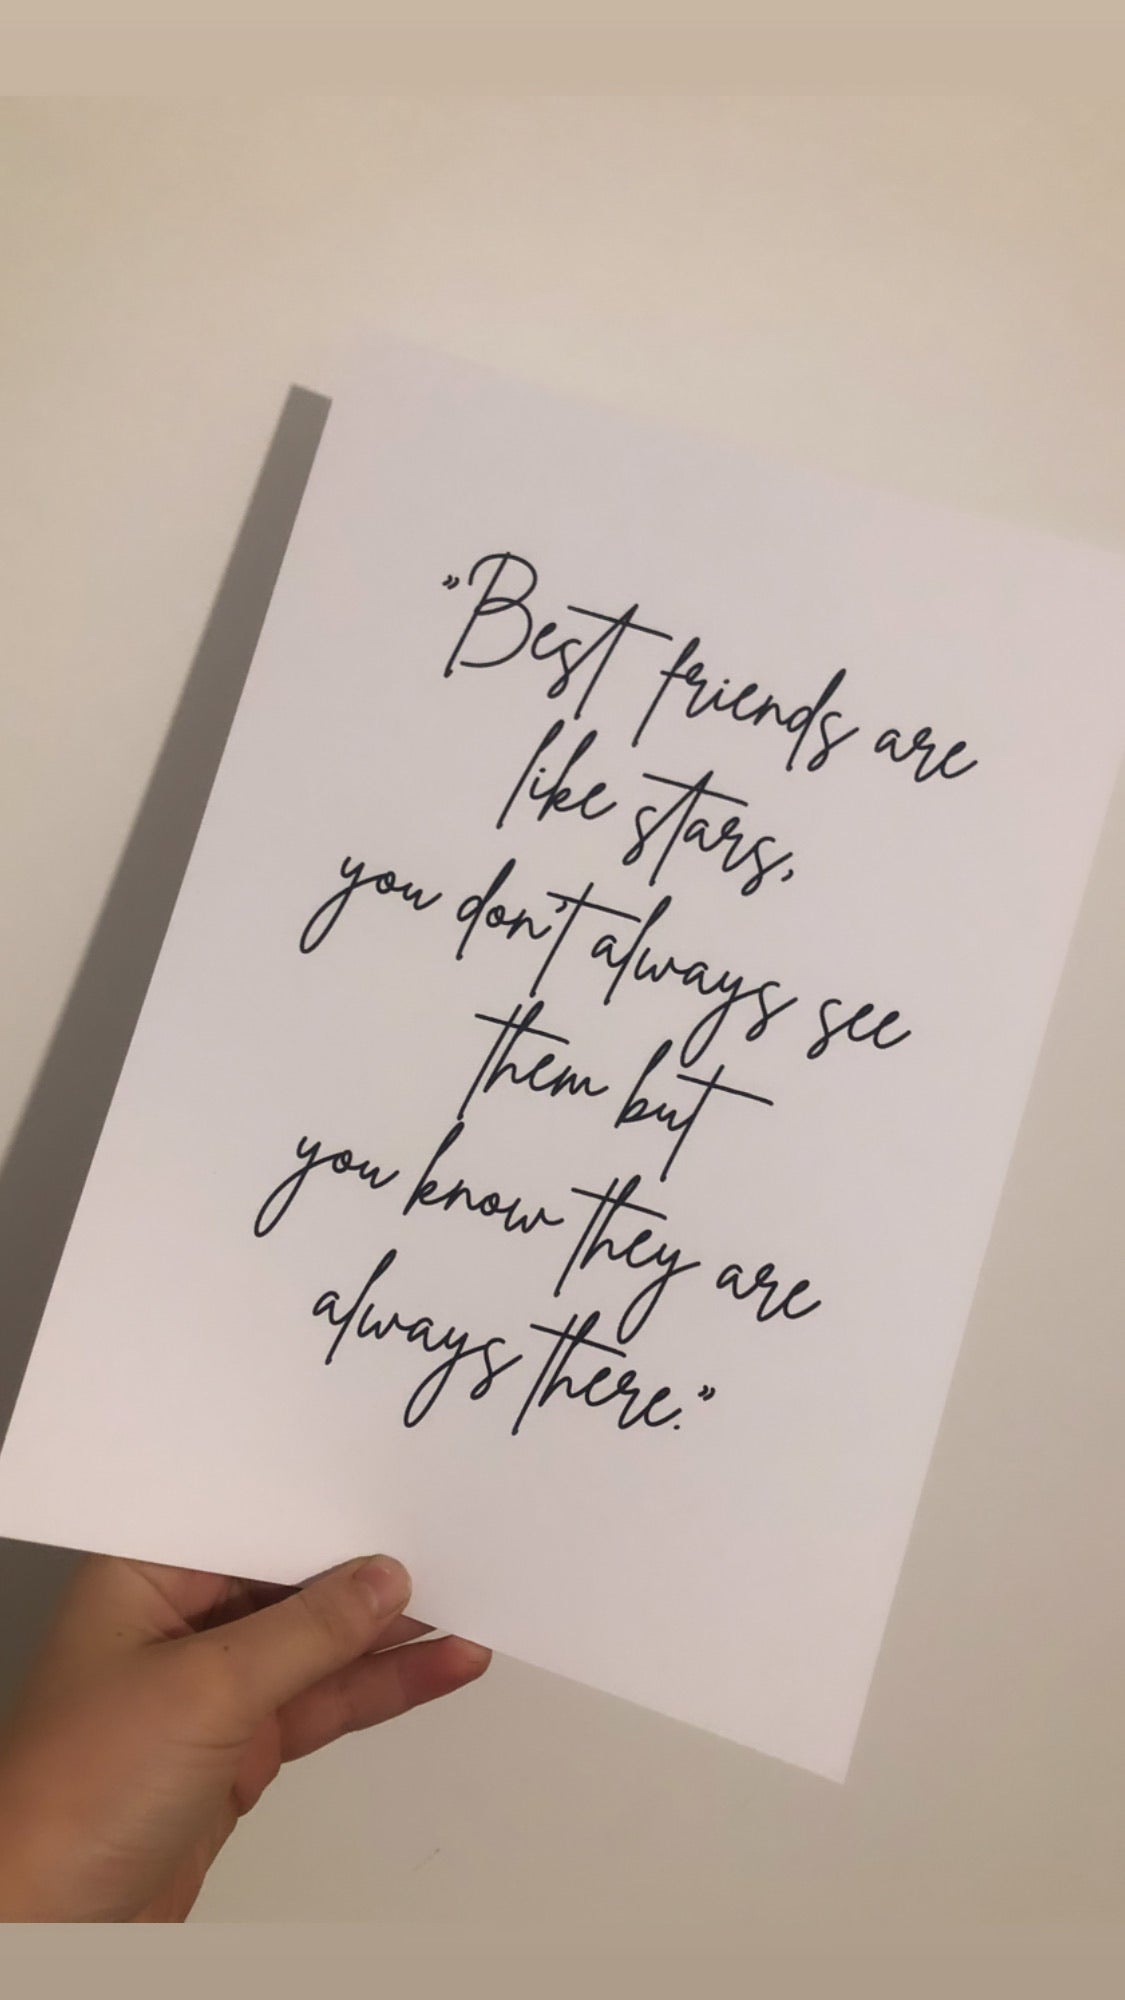 ”Best friends are
like stars,
you don't always see
them but
you know they are
always there.”